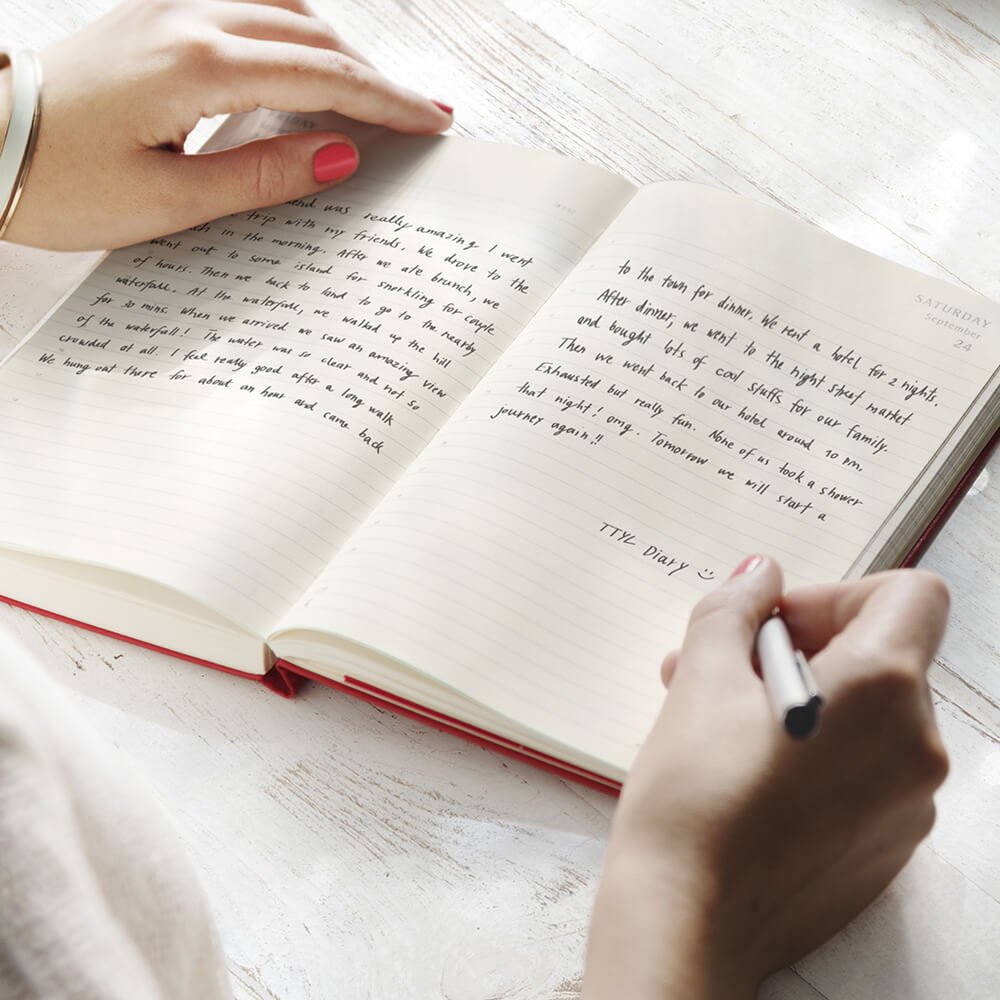 was really amazing I went
trip with my friends. We drove to the
in the morning. After we ate brunch, we
went out to some island for snorkling for couple
of hours. Then we back to land to go to the nearby
waterfall. At the waterfall, we walked up the hill
for 30 mins. When we arrived we saw an amazing view
of the waterfall! The water was so clear and not so
crowded at all. I feel really good after a long walk
We hung out there for about an hour and came back
SATURDAY
September
24
to the town for dinner. We rent a hotel for 2 nights.
After dinner, we went to the night street market
and bought lots of cool stuffs for our family.
Then we went back to our hotel around 10 pm.
Exhausted but really fun. None of us took a shower
that night! omg. Tomorrow we will start a
journey again!!
TTYL Diary